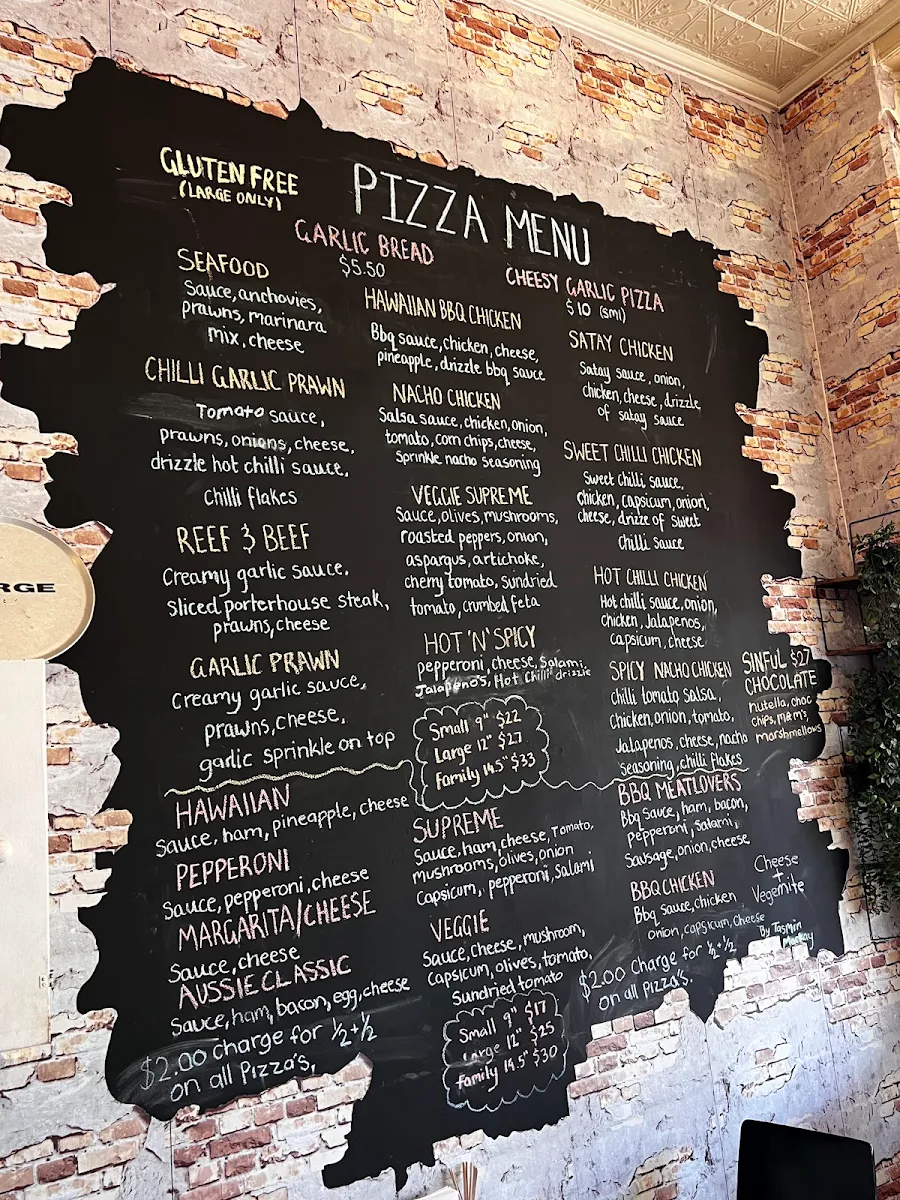 GLUTEN FREE
(LARGE ONLY)
PIZZA MENU
GARLIC BREAD
$5.50
CHEESY GARLIC PIZZA
$10 (sml)
SEAFOOD
Sauce, anchovies,
prawns, marinara
mix, cheese
CHILLI GARLIC PRAWN
Tomato sauce,
prawns, onions, cheese,
drizzle hot chilli sauce,
chilli flakes
REEF & BEEF
Creamy garlic sauce.
Sliced porterhouse steak,
prawns, cheese
GARLIC PRAWN
Creamy garlic sauce,
prawns, cheese,
garlic sprinkle on top
HAWAIIAN BBQ CHICKEN
Bbq sauce, chicken, cheese,
pineapple, drizzle bbq sauce
NACHO CHICKEN
Salsa sauce, chicken, onion,
tomato, corn chips, cheese,
Sprinkle nacho seasoning
VEGGIE SUPREME
Sauce, olives, mushrooms,
roasted peppers, onion,
aspargus, artichoke,
cherry tomato, sundried
tomato, crumbed feta
HOT 'N' SPICY
pepperoni, cheese, Salami,
Jalapeno's, Hot Chilli drizzle
Small 9" $22
Large 12" $27
Family 14.5" $33
SATAY CHICKEN
Satay sauce, onion,
chicken, cheese, drizzle,
of satay sauce
SWEET CHILLI CHICKEN
Sweet chilli sauce,
chicken, capsicum, onion,
cheese, drizze of sweet
chilli sauce
HOT CHILLI CHICKEN
Hot chilli sauce, onion,
chicken, Jalapenos,
capsicum, cheese
SPICY NACHO CHICKEN
chilli tomato salsa,
chicken, onion, tomato,
Jalapenos, cheese, nacho
seasoning, chilli flakes
SINFUL $27
CHOCOLATE
nutella, choc
chips, m&m's,
marshmellows
HAWAIIAN
Sauce, ham, pineapple, cheese
PEPPERONI
Sauce, pepperoni, cheese
MARGARITA/CHEESE
Sauce, cheese
AUSSIE CLASSIC
Sauce, ham, bacon, egg, cheese
$2.00 charge for ½ + ½
on all Pizza's.
SUPREME
Sauce, ham, cheese, Tomato,
mushrooms, olives, onion
Capsicum, pepperoni, Salami
VEGGIE
Sauce, cheese, mushroom,
capsicum, olives, tomato,
Sundried tomato
Small 9" $17
Large 12" $25
Family 14.5" $30
BBQ MEATLOVERS
Bbq Sauce, ham, bacon,
Pepperoni, salami,
Sausage, onion, cheese
BBQ CHICKEN
Bbq sauce, chicken
onion, capsicum, cheese
$2.00 Charge for ½ + ½
on all Pizza's.
Cheese
+
Vegemite
By Tasmin
RGE